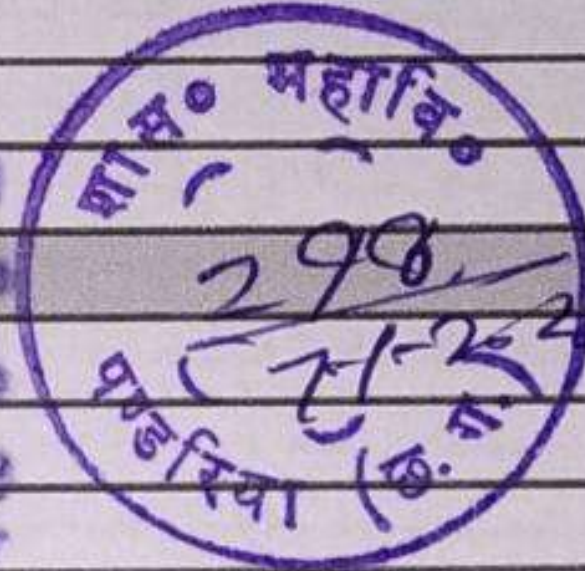 शास० महावि०
298
पण्डरिया (छ. ग.